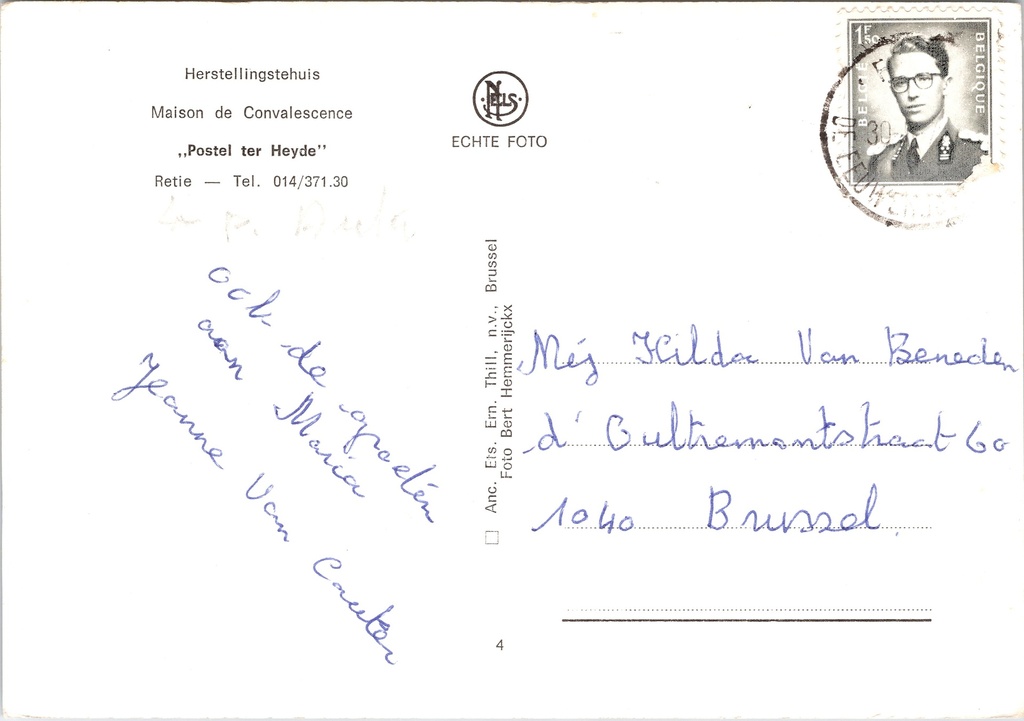 Herstellingstehuis
Maison de Convalescence
„Postel ter Heyde”
Retie — Tel. 014/371.30
NELS
ECHTE FOTO
1F50
BELGIE
BELGIQUE
30
ook de groeten
aan Maria
Jeanne Van Cauter
Anc. Ets. Ern. Thill, n.v., Brussel
Foto Bert Hemmerijckx
Mej Hilda Van Beneden
d' Oultremontstraat 60
1040 Brussel.
4